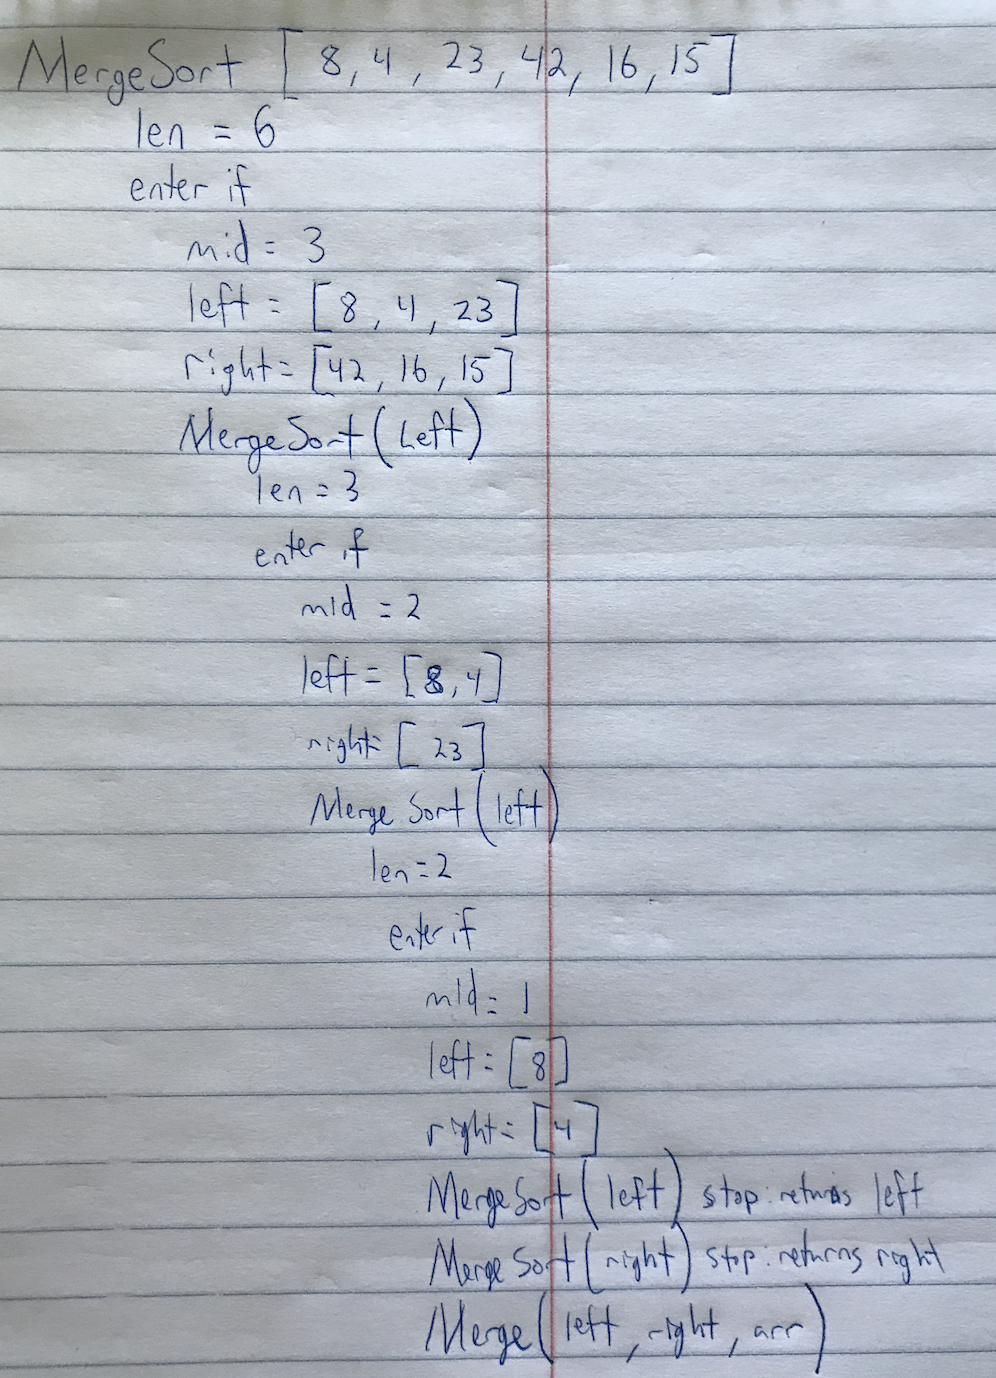 MergeSort [8, 4, 23, 42, 16, 15]
len = 6
enter if
mid = 3
left = [8, 4, 23]
right = [42, 16, 15]
MergeSort(Left)
len = 3
enter if
mid = 2
left = [8, 4]
right = [23]
Merge Sort(left)
len = 2
enter if
mid = 1
left = [8]
right = [4]
MergeSort(left) stop: returns left
Merge Sort(right) stop: returns right
Merge(left, right, arr)